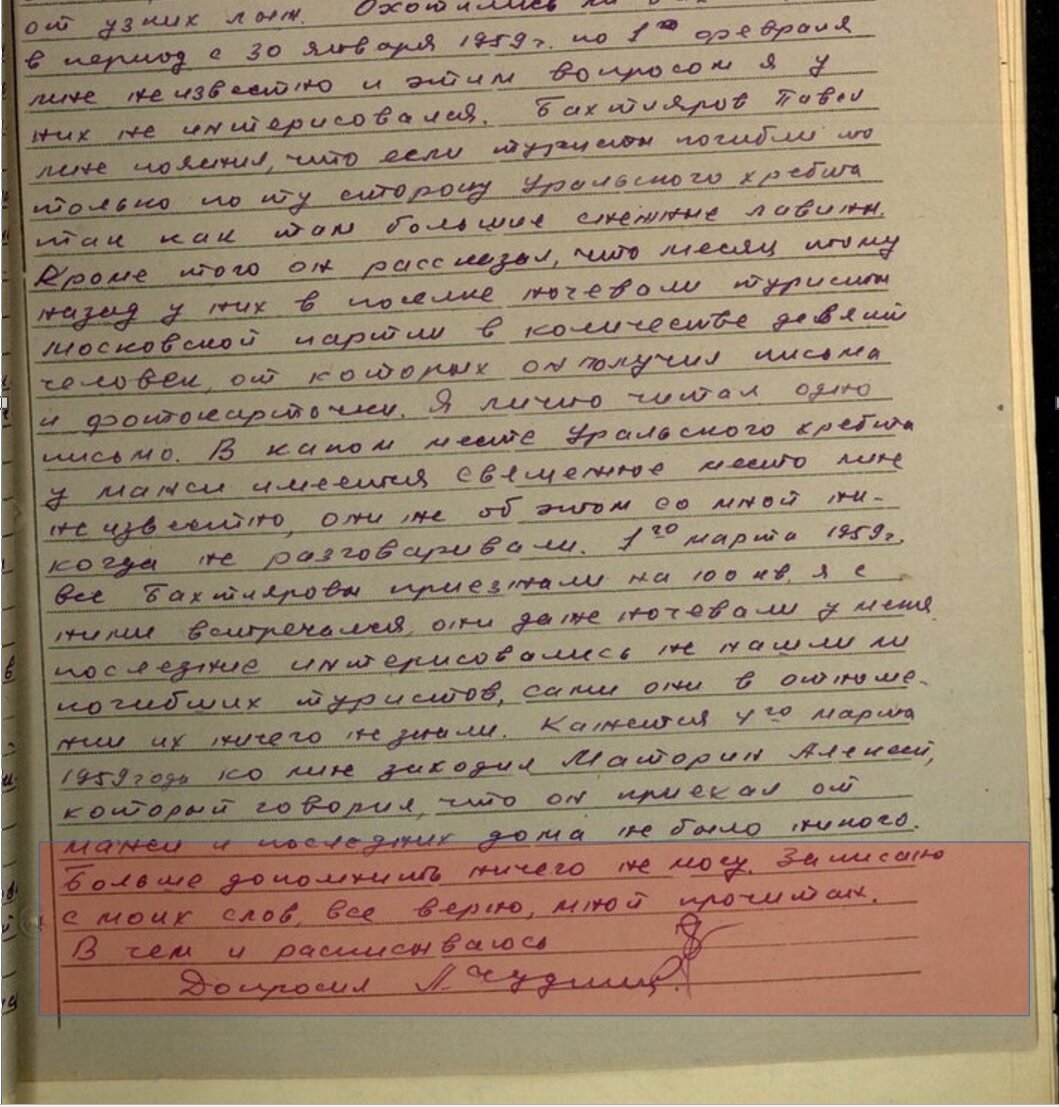 от узких лыж. Охотились ли
в период с 30 января 1959 г. по 1го февраля
мне неизвестно и этим вопросом я у
них не интерисовался. Бахтияров Павел
мне пояснил, что если туристы погибли то
только по ту сторону Уральского хребта
так как там большие снежные лавины.
Кроме того он рассказал, что месяц тому
назад у них в поселке ночевали туристы
московской партии в количестве девяти
человек, от которых он получил письма
и фотокарточки. Я лично читал одно
письмо. В каком месте Уральского хребта
у манси имеется священное место мне
неизвестно, они же об этом со мной ни-
когда не разговаривали. 1го марта 1959 г.
все Бахтияровы приезжали на 100 кв. я с
ними встречался, они даже ночевали у меня
последние интерисовались не нашли ли
погибших туристов, сами они в отноше-
нии их ничего не знали. Кажется 4го марта
1959 года ко мне заходил Маторин Алексей,
который говорил, что он приехал от
манси и последних дома не было никого.
Больше дополнить ничего не могу. Записано
с моих слов, все верно, мной прочитан.
В чем и расписываюсь
Допросил Л. Чудинов.